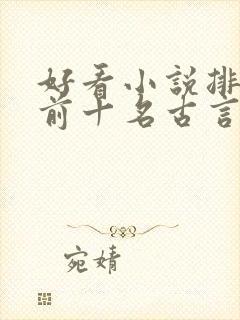 好看小説排
前十名古言
宛婧